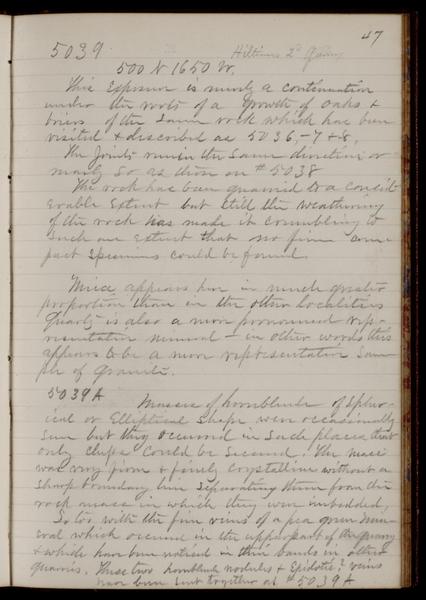 47
5039 Hiltons 2d Quarry
500 N 1650 W.
This Exposure is merely a continuation
under the roots of a growth of oaks &
briers of the same rock which has been
visited & described as 5036, -7 & 8.
The Joints run in the same direction or
nearly so as those on #5038
The rock has been quarried to a consid
erable Extent but still the weathering
of the rock has made it crumbling to
such an Extent that no firm com-
pact specimens could be found.
Mica appears here in much greater
proportion than in the other localities
Quartz is also a more pronounced rep-
resentative mineral - in other words this
appears to be a more representative Sam-
ple of Granite.
5039A Masses of hornblende of spher-
ical or Elliptical shape were occasionally
seen but they occurred in such places that
only chips could be secured. The mass
was very firm & finely crystalline without a
sharp boundary line separating them from the
rock mass in which they were imbedded,
So too with the fine veins of a pea green min-
eral which occurred in the upper part of the quarry
& which have been noticed in thin bands in other
quarries. These two hornblende nodules & Epidote? veins
have been sent together as #5039A